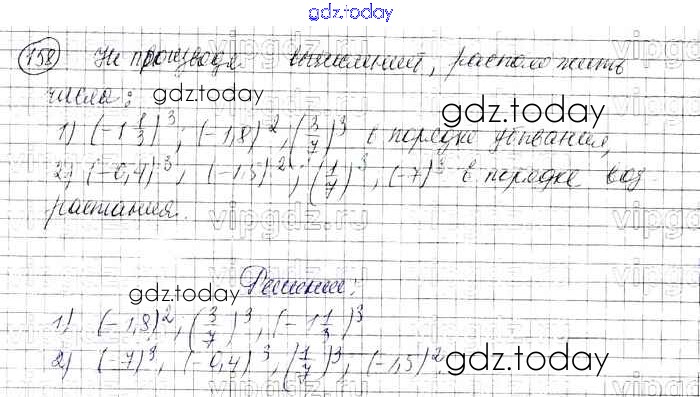 gdz.today
158) Не производя вычислений, расположить
числа: gdz.today gdz.today
1) (-1 1/3)^3; (-1,8)^2; (3/7)^3 в порядке убывания,
2) (-0,4)^3; (-1,5)^2; (1/7)^3, (-7)^3 в порядке воз
растания.
Решение:
gdz.today
1) (-1,8)^2; (3/7)^3, (-1 1/3)^3
2) (-7)^3, (-0,4)^3, (1/7)^3, (-1,5)^2. gdz.today